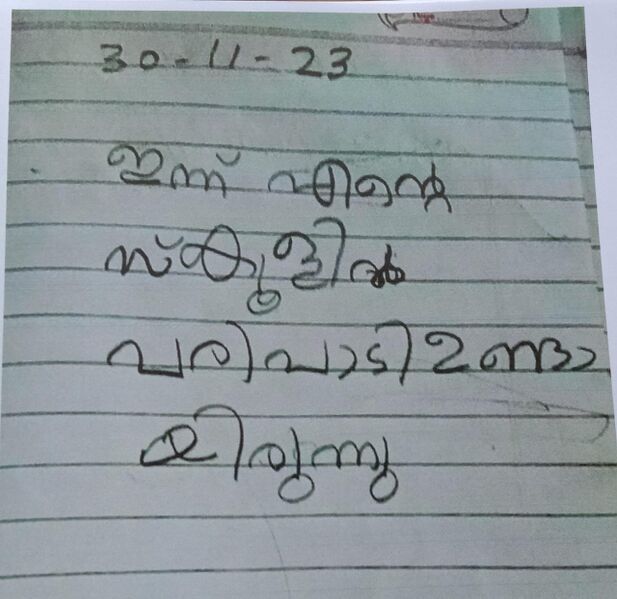 30-11-23
ഇന്ന് എന്റെ
സ്കൂളിൽ
പരിപാടി ഉണ്ടാ
യിരുന്നു